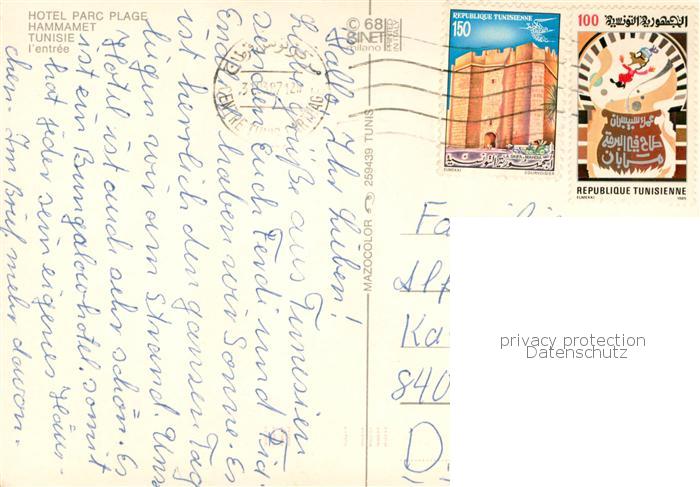 HOTEL PARC PLAGE
HAMMAMET
TUNISIE
l'entrée
© 68
SINET
milano
PRINTED
IN ITALY
MAZOCOLOR - 259439 TUNIS
Hallo Ihr Lieben!
Liebe Grüße aus Tunesien
senden Euch Ferdi und
Endl. haben wir Sonne. Es
ist herrlich den ganzen Tag
liegen wir am Strand. Uns.
Hotel ist auch sehr schön. Es
ist ein Bungalowhotel. somit
hat jeder sein eigenes Häus-
chen. Im Brief mehr davon.
REPUBLIQUE TUNISIENNE
150
LA SKIFA - MAHDIA
الجمهورية التونسية
ELMEKKI
100
الجمهورية التونسية
طاح في البرمة
REPUBLIQUE TUNISIENNE
ELMEKKI
Fa
Alf
Ka
840
D
privacy protection
Datenschutz